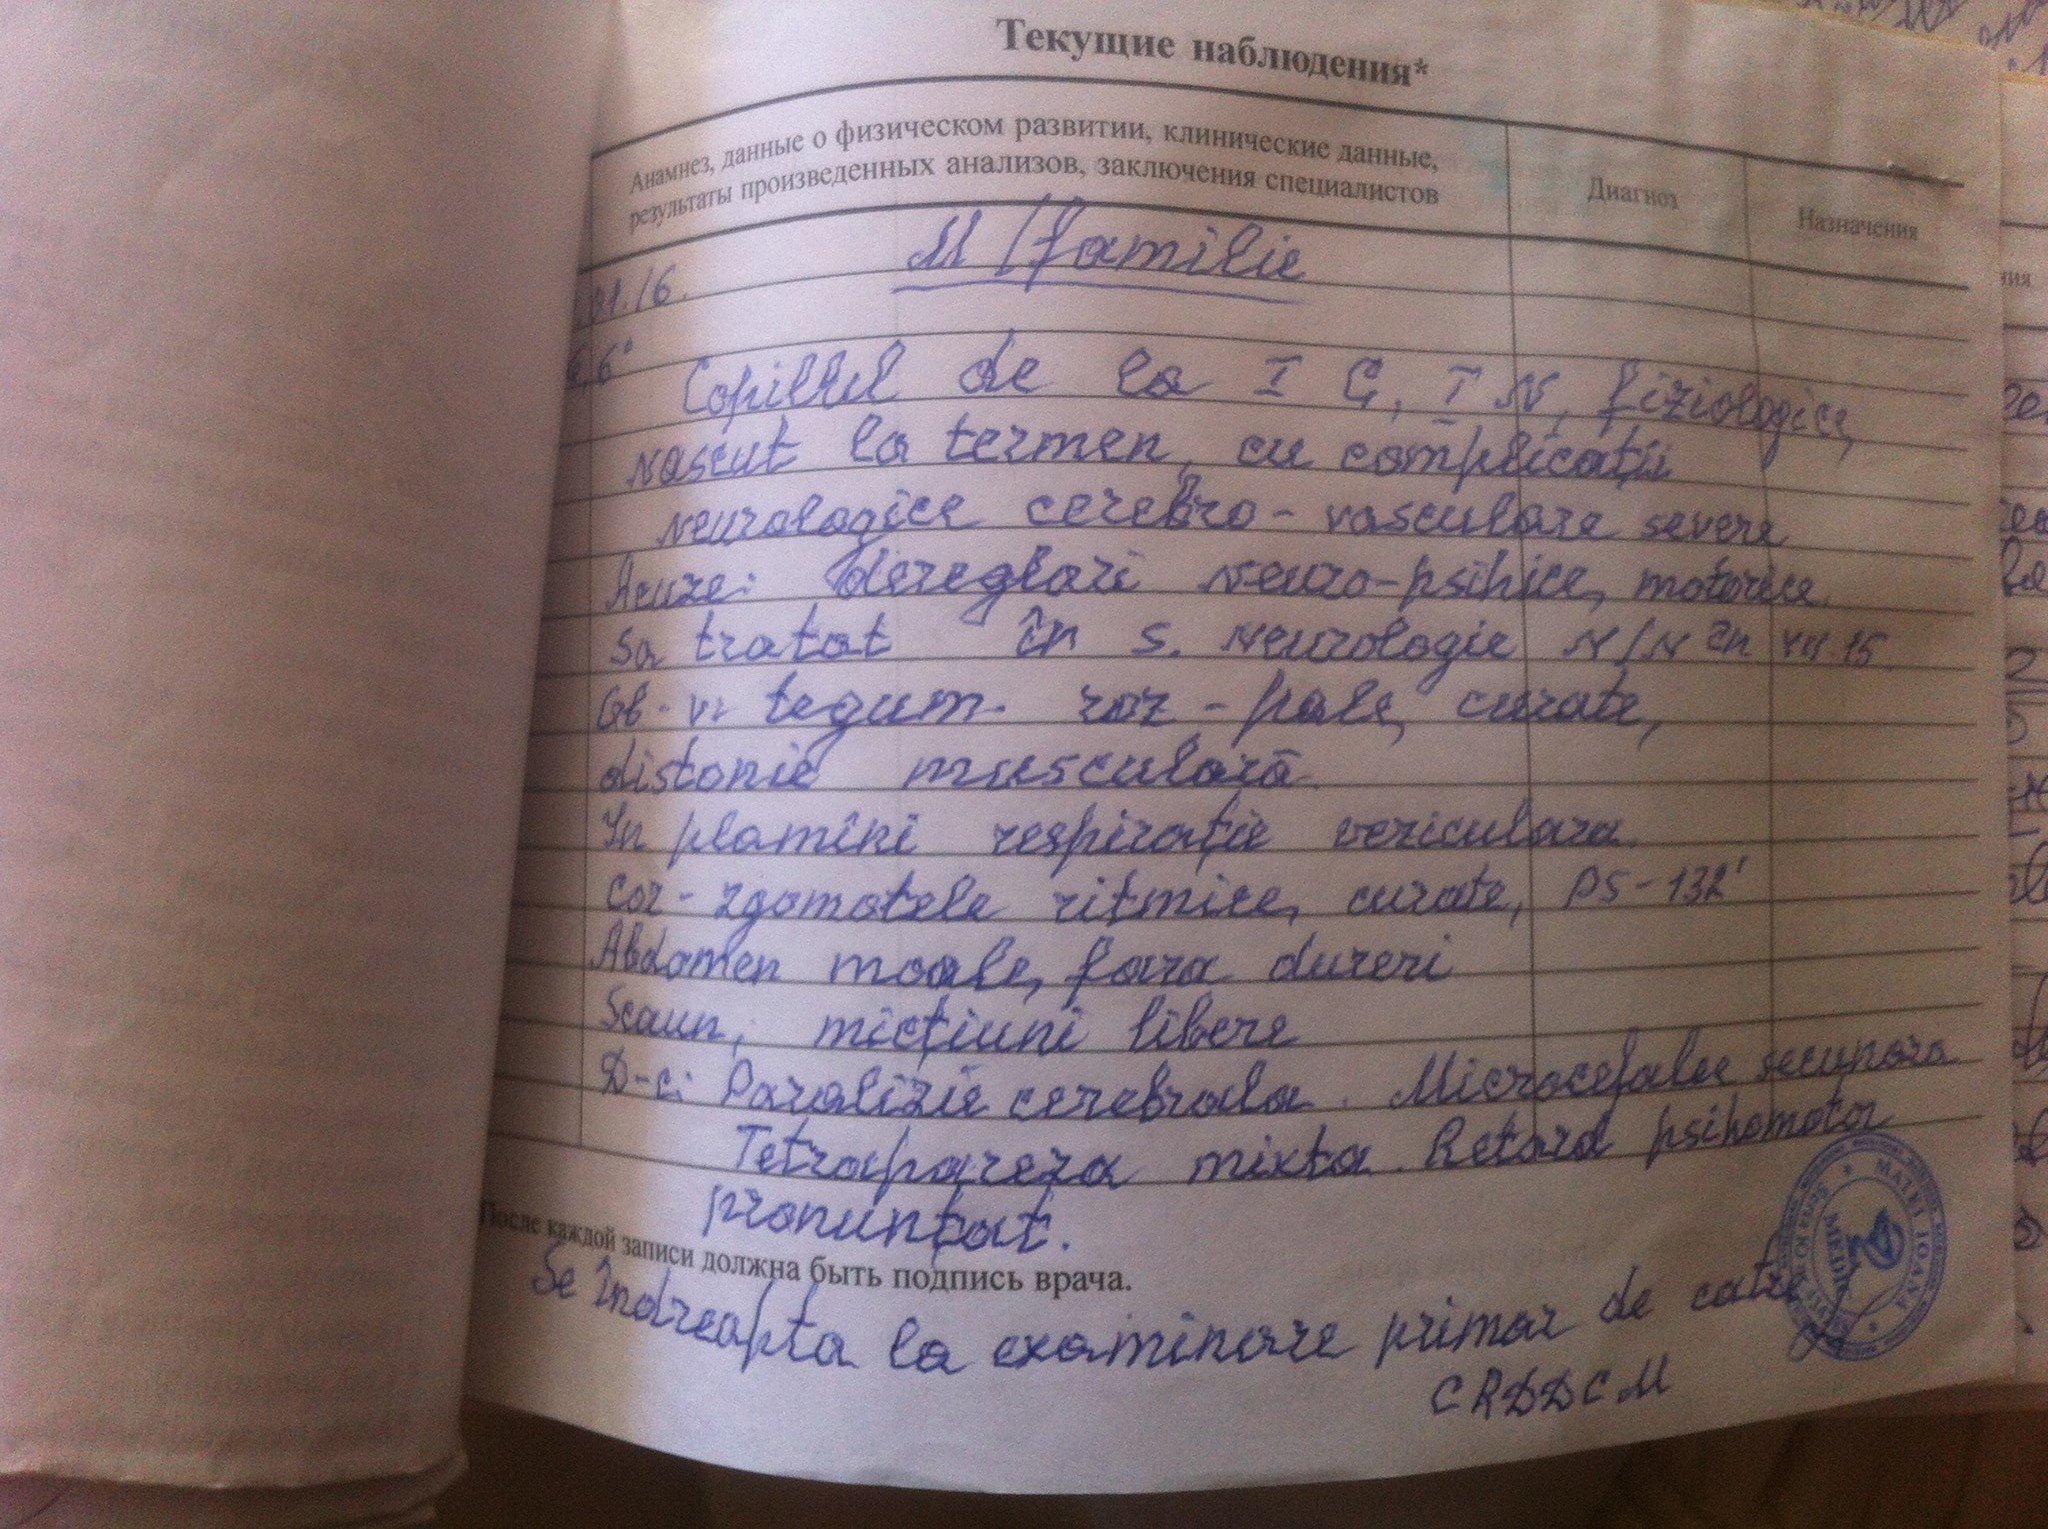 Текущие наблюдения*
Анамнез, данные о физическом развитии, клинические данные,
результаты произведенных анализов, заключения специалистов
Диагноз
Назначения
M/familie
01.16.
6,6°
Copillul de la I G, I N, fiziologice,
născut la termen, cu complicații
neurologice cerebro-vasculare severe
Acuze: dereglari neuro-psihice, motorice.
Sa tratat în s. neurologie N/N în 15
Ob-v: tegum. roz-pale, curate,
distonie musculară.
In plamîni respirație veziculara.
Cor-zgomotele ritmice, curate, PS-132'
Abdomen moale, fara dureri
Scaun, micțiuni libere
D-c: Paralizie cerebrala. Microcefalie secundara
Tetrapareza mixta. Retard psihomotor
pronunțat.
После каждой записи должна быть подпись врача.
Se îndreapta la examinare primar de catre
CRDDCM
MATEI IOANA
MEDIC